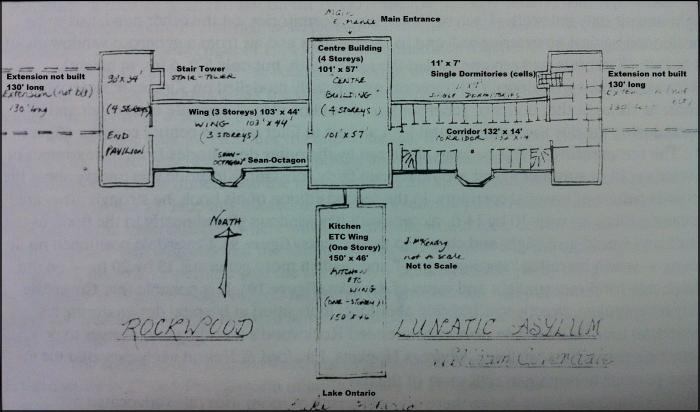 MAIN
Main Entrance
Centre Building
(4 Storeys)
101' x 57'
CENTRE
BUILDING
(4 STOREYS)
101' x 57
11' x 7'
Single Dormitories (cells)
SINGLE DORMITORIES
Stair Tower
STAIR-TOWER
Extension not built
130' long
Extension (not blt)
130' long
(4 STOREYS)
END
PAVILION
Wing (3 Storeys) 103' x 44'
WING 103' x 44'
(3 STOREYS)
SEAN-
OCTAGON
Sean-Octagon
Corridor 132' x 14'
CORRIDOR
Extension not built
130' long
130' long
NORTH
Kitchen
ETC Wing
(One Storey)
150' x 46'
KITCHEN
ETC
WING
(ONE-STOREY)
150' x 46'
J. McKendry
not to scale
Not to Scale
ROCKWOOD LUNATIC ASYLUM
William Coverdale
Lake Ontario